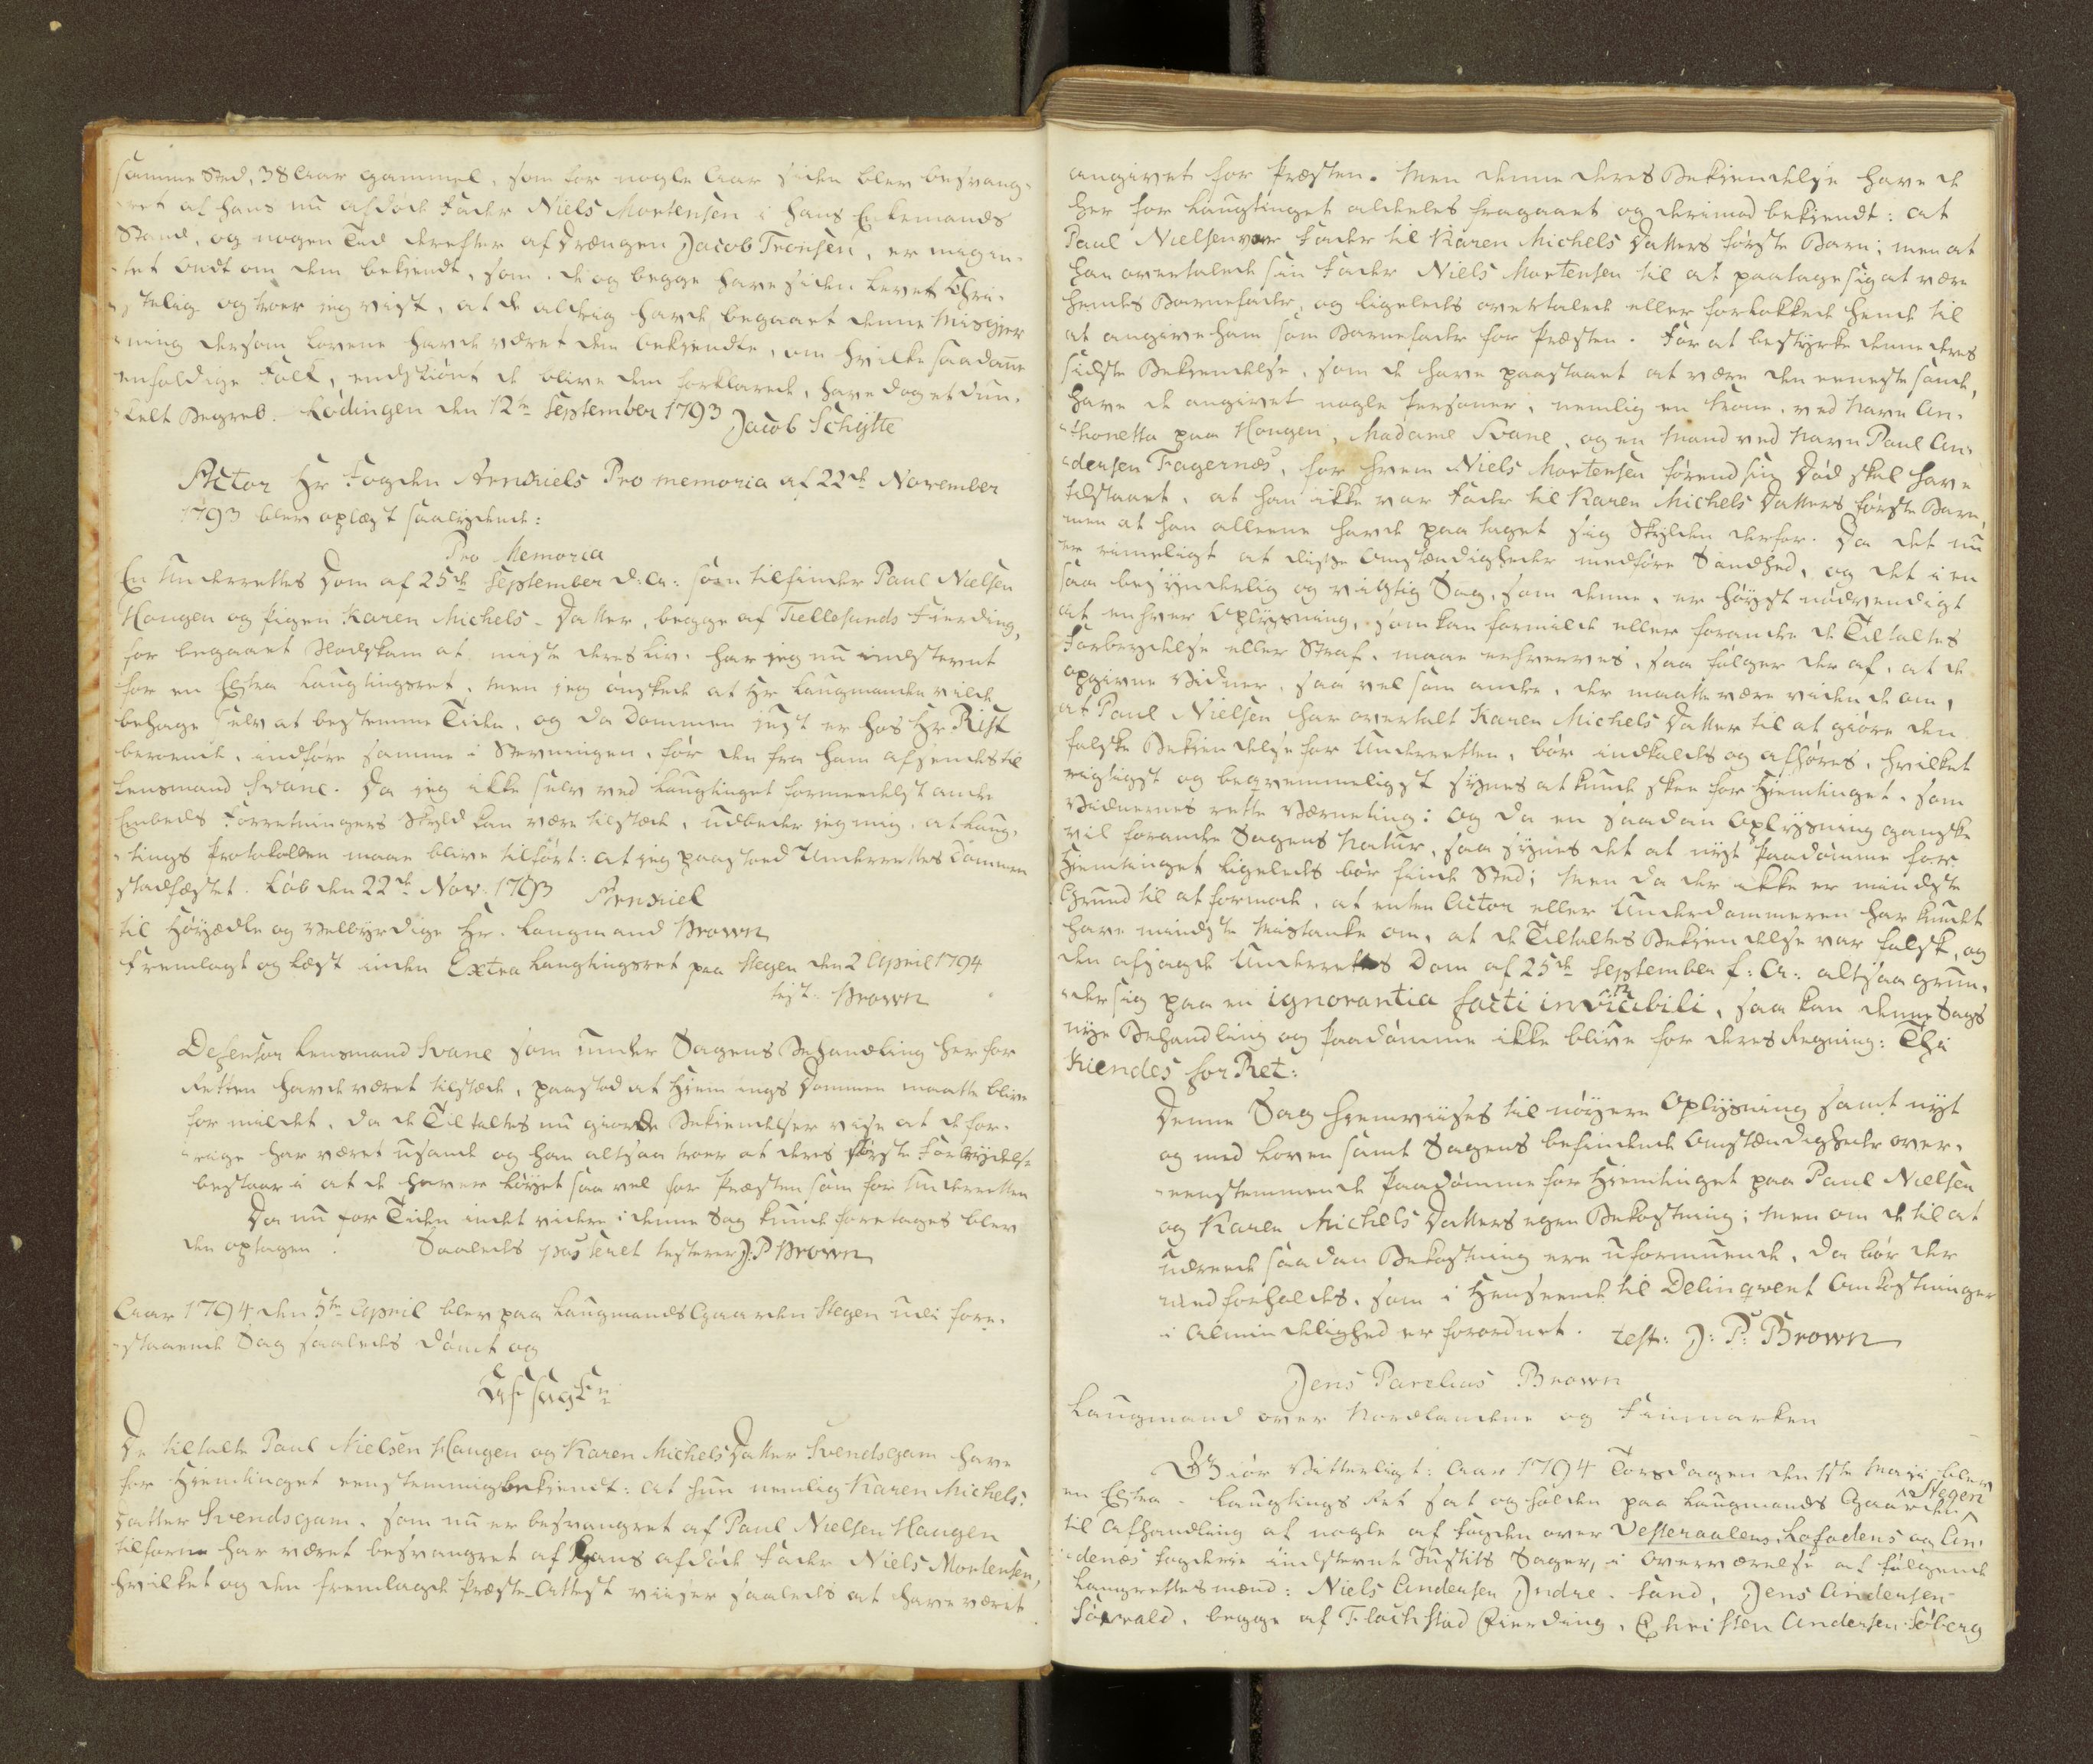 samme Sted, 38 Aar gammel, som for nogle Aar siden blev besvang-
ret af hans nu afdøde Fader Niels Mortensen i hans Enkemands
Stand, og nogen Tid derefter af Drængen Jacob Tronsen, er ingen-
tet ondt om dem bekiendt, som de og begge have siden levet Chri-
stelig og troer jeg vist, at de aldrig havde begaaet denne Misgier
ning dersom Lovene havde været dem bekiendte, om hvilke saadanne
enfoldige Folk, endskiønt de blive dem forklarede, have dog et dun-
kelt Begreb. Lødingen den 12te September 1793 Jacob Schytte
Actor Hr Fogden Arnxiels Pro memoria af 22de November
1793 blev oplæst saalydende:
Pro Memoria
En Underrettes Dom af 25de September d: a: som tilfinder Paul Nielsen
Haugen og Pigen Karen Michels-Datter, begge af Tiellesunds Fierding,
for begaaet Blodskam at miste deres Liv, har jeg nu indstevnt
for en Extra Laugtingsret, men jeg ønskede at Hr Laugmanden vilde
behage selv at bestemme Tiden, og da Dommen just er hos Hr Rist
beroende, indføre samme i Stevningen, før den fra ham afsendes til
Lensmand Svane. Da jeg ikke selv ved Laugtinget formedelst andre
Embeds Forretningers Skyld kan være tilstæde, udbeder jeg mig, at Laug-
tings Protokollen maae blive tilført: at jeg paastoed Underrettes Dommen
stadfæstet. Løb den 22de Nov: 1793 Arnxiel
til Høyædle og Velbyrdige Hr. Laugmand Brown
Fremlagt og læst inden Extra Laugtingsret paa Stegen den 2 April 1794
test: Brown
Defensor Lensmand Svane som under Sagens Behandling her for
Retten havde været tilstæde, paastod at Hiemtings Dommen maatte blive
formildet, da de Tiltaltes nu giorde Bekiendelser vise at de for-
rige har været usande og han altsaa troer at deres største Forbrydelse
bestaar i at de haver løyet saa vel for Præsten som for Underretten
Da nu for Tiden intet videre i denne Sag kunde foretages blev
den optagen. Saaledes passeret testerer J: P Brown
Aar 1794 den 5te April blev paa Laugmands Gaarden Stegen udi fore-
staaende Sag saaledes Dømt og
Afsagt:
De tiltalte Paul Nielsen Haugen og Karen Michels Datter Svendsgam have
for Hiemtinget eenstemmig bekiendt: at hun nemlig Karen Michels-
Datter Svendsgam, som nu er besvangret af Paul Nielsen Haugen
tilforn har været besvangret af hans afdøde Fader Niels Mortensen,
hvilket og den fremlagde Præste-Attest viiser saaledes at have været
angivet for Præsten. Men denne deres Bekiendelse have de
her for Laugtinget aldeeles fragaaet og derimod bekiendt: at
Paul Nielsen var Fader til Karen Michels Datters første Barn; men at
han overtalede sin Fader Niels Mortensen til at paatage sig at være
hendes Barnefader, og ligeledes overtalede eller forlokkede hende til
at angive ham som Barnefader for Præsten. For at bestyrke denne deres
sidste Bekiendelse, som de have paastaaet at være den eeneste sande,
have de angivet nogle Personer, nemlig en Kone, ved Navn An-
thonetta paa Haugen, Madame Svane, og en Mand ved Navn Paul An-
dersen Fagernæs, for hvem Niels Mortensen førend sin Død skal have
tilstaaet, at han ikke var Fader til Karen Michels Datters første Barn,
men at han alleene havde paa taget sig Skylden derfor. Da det nu
er rimeligt at disse Omstændigheder medføre Sandhed, og det i en
saa besynderlig og vigtig Sag, som denne, er høyst nødvendigt
at enhver Oplysning, som kan formilde eller forandre de Tiltaltes
Forbrydelse eller Straf, maae erhverves, saa følger der af, at de
opgivne Vidner, saa vel som andre, der maatte være vidende om,
at Paul Nielsen har overtalt Karen Michels Datter til at giøre den
falske Bekiendelse for Underretten, bør indkaldes og afhøres, hvilket
rigtigst og beqvemmeligst synes at kunde skee for Hiemtinget, som
Vidnernes rette Værneting: og da en saadan Oplysning ganske
vil forandre Sagens Natur, saa synes det at nyt Paadømme for
Hiemtinget ligeledes bør finde Sted; Men da der ikke er mindste
Grund til at formode, at enten Actor eller Underdommeren har kundet
have mindste Mistanke om, at de Tiltaltes Bekiendelse var falsk, og
den afsagde Underrettes Dom af 25de September f: A: altsaa grun-
der sig paa en ignorantia facti invincibili, saa kan denne Sags
nye Behandling og Paadømme ikke blive for deres Regning: Thi
Kiendes for Ret:
Denne Sag hiemviises til nøyere Oplysning samt nyt
og med Loven samt Sagens befindende Omstændigheder over-
eenstemmende Paadømme for Hiemtinget paa Paul Nielsen
og Karen Michels Datters egen Bekostning; men om de til at
udreede saadan Bekostning ere uformuende, da bør der
med forholdes, som i Henseende til Delinqvent Omkostninger
i Almindelighed er forordnet. test: J: P: Brown
Jens Parelius Brown
Laugmand over Nordlandene og Finmarken
Giør Vitterligt: Aar 1794 Torsdagen den 1ste Maji blev
en Extra-Laugtings Ret sat og holden paa Laugmands Gaarden Stegen
til Afhandling af nogle af Fogden over Vesteraalens, Lofodens og An-
denæs Fogderie indstevnte Justits Sager, i Overværelse af følgende
Laugrettesmænd: Niels Andersen Indre-Sand, Jens Andersen
Sørvald, begge af Flachstad Fierding, Christen Andersen Søberg